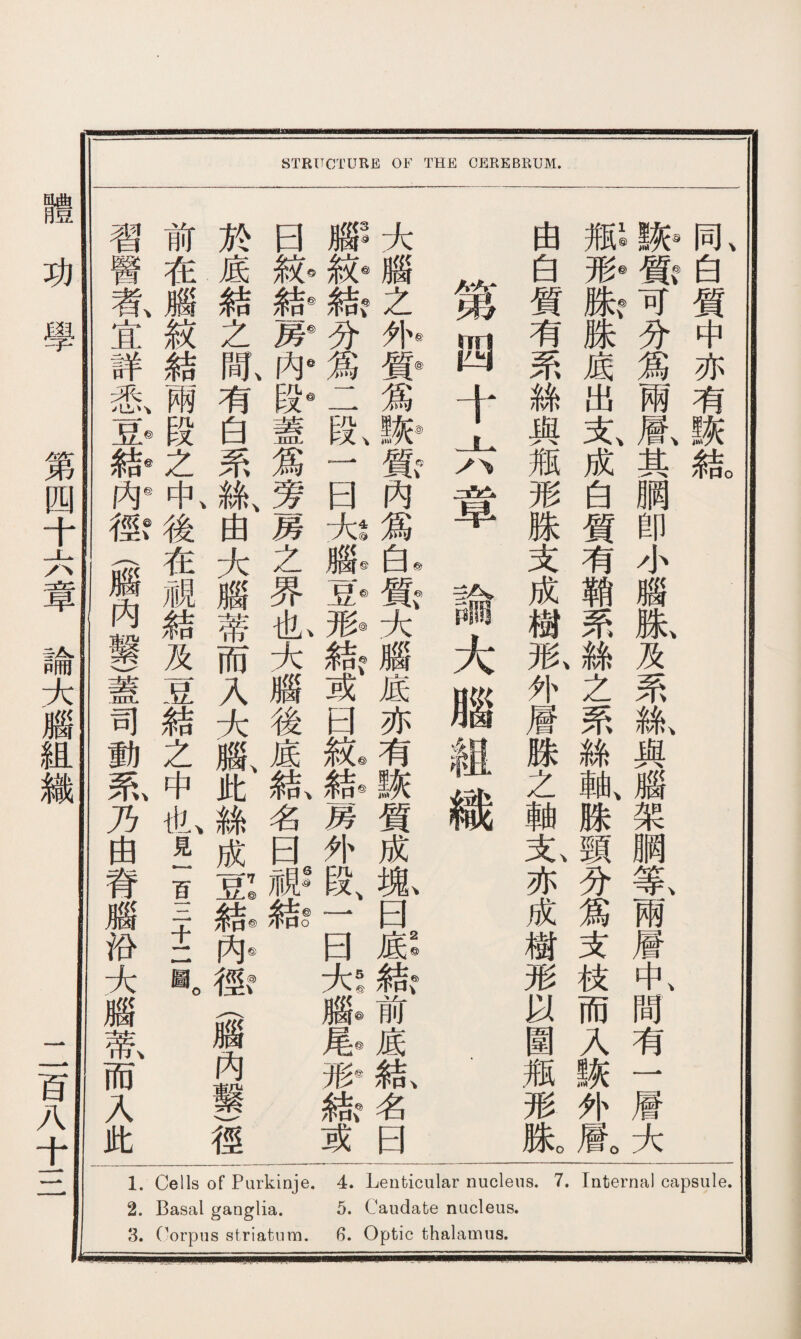 STRUCTURE OF THE CEREBRUM.
同、白質中亦有黢結。
黢質、可分爲兩層、其膶卽小腦脙、及系絲、與腦架膶等、兩層中、間有一層大
瓶¹形脙、脙底出支、成白質有鞘系絲之系絲軸、脙頸分爲支枝而入黢外層。
由白質有系絲與瓶形脙支成樹形、外層脙之軸支、亦成樹形以圍瓶形脙。
第四十六章 論大腦組織
大腦之外質爲黢質、內爲白質、大腦底亦有黢質成塊、曰底²結、前底結、名曰
腦³紋結、分爲二段、一曰大⁴腦豆形結、或曰紋結房外段、一曰大⁵腦尾形結、或
曰紋結房內段、蓋爲旁房之界也、大腦後底結、名曰視⁶結。
於底結之間、有白系絲、由大腦蒂而入大腦、此絲成豆⁷結內徑、(腦內繫)徑
前在腦紋結兩段之中、後在視結及豆結之中也、見一百三十二圖。
習醫者、宜詳悉、豆結內徑、(腦內繫)蓋司動系、乃由脊腦沿大腦蒂、而入此
體功學 第四十六章 論大腦組織 二百八十三
1. Cells of Purkinje. 4. Lenticular nucleus. 7. Internal capsule.
2. Basal ganglia. 5. Caudate nucleus.
3. Corpus striatum. 6. Optic thalamus.